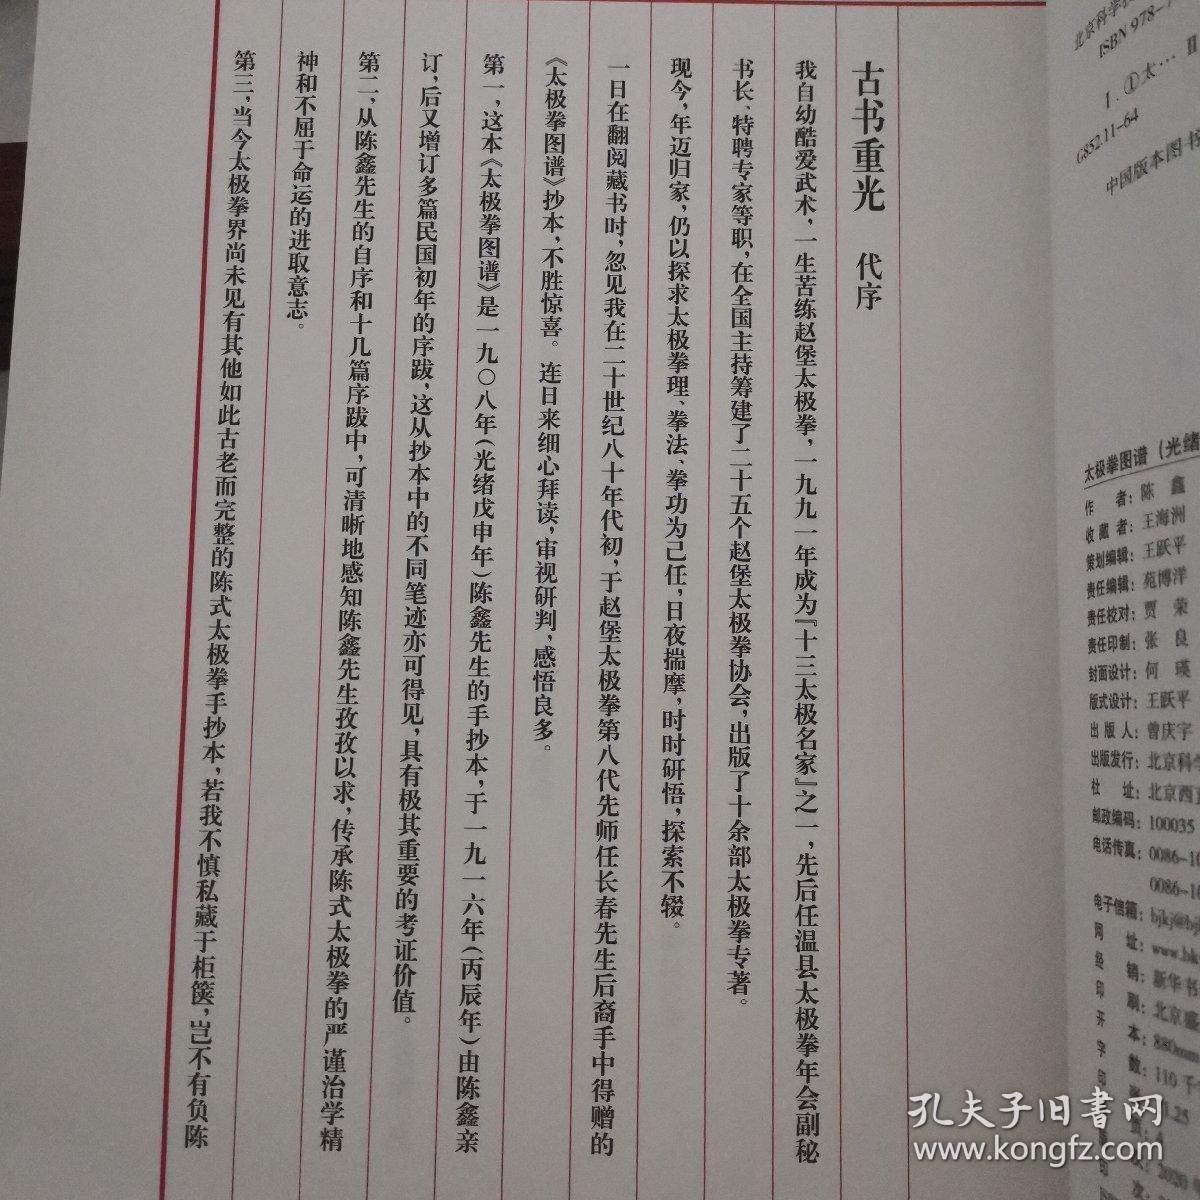 古书重光 代序
我自幼酷爱武术，一生苦练赵堡太极拳，一九九一年成为『十三太极名家』之一，先后任温县太极拳年会副秘
书长、特聘专家等职，在全国主持筹建了二十五个赵堡太极拳协会，出版了十余部太极拳专著。
现今，年迈归家，仍以探求太极拳理、拳法、拳功为己任，日夜揣摩，时时研悟，探索不辍。
一日在翻阅藏书时，忽见我在二十世纪八十年代初，于赵堡太极拳第八代先师任长春先生后裔手中得赠的
《太极拳图谱》抄本，不胜惊喜。连日来细心拜读，审视研判，感悟良多。
第一，这本《太极拳图谱》是一九〇八年（光绪戊申年）陈鑫先生的手抄本，于一九一六年（丙辰年）由陈鑫亲
订，后又增订多篇民国初年的序跋，这从抄本中的不同笔迹亦可得见，具有极其重要的考证价值。
第二，从陈鑫先生的自序和十几篇序跋中，可清晰地感知陈鑫先生孜孜以求，传承陈式太极拳的严谨治学精
神和不屈于命运的进取意志。
第三，当今太极拳界尚未见有其他如此古老而完整的陈式太极拳手抄本，若我不慎私藏于柜箧，岂不有负陈
北京科学技
ISBN 978-7
Ⅰ.①太… Ⅱ
G852.11-64
中国版本图书
太极拳图谱（光绪
作 者：陈 鑫
收 藏 者：王海洲
策划编辑：王跃平
责任编辑：苑博洋
责任校对：贾 荣
责任印制：张 良
封面设计：何 瑛
版式设计：王跃平
出 版 人：曾庆宇
出版发行：北京科学
社 址：北京西直
邮政编码：100035
电话传真：0086-10
0086-10
电子信箱：bjkj@bj
网 址：www.bk
经 销：新华书
印 刷：北京
开 本：880mm
字 数：110 千
印 张：1.25
2020
孔夫子旧书网
www.kongfz.com